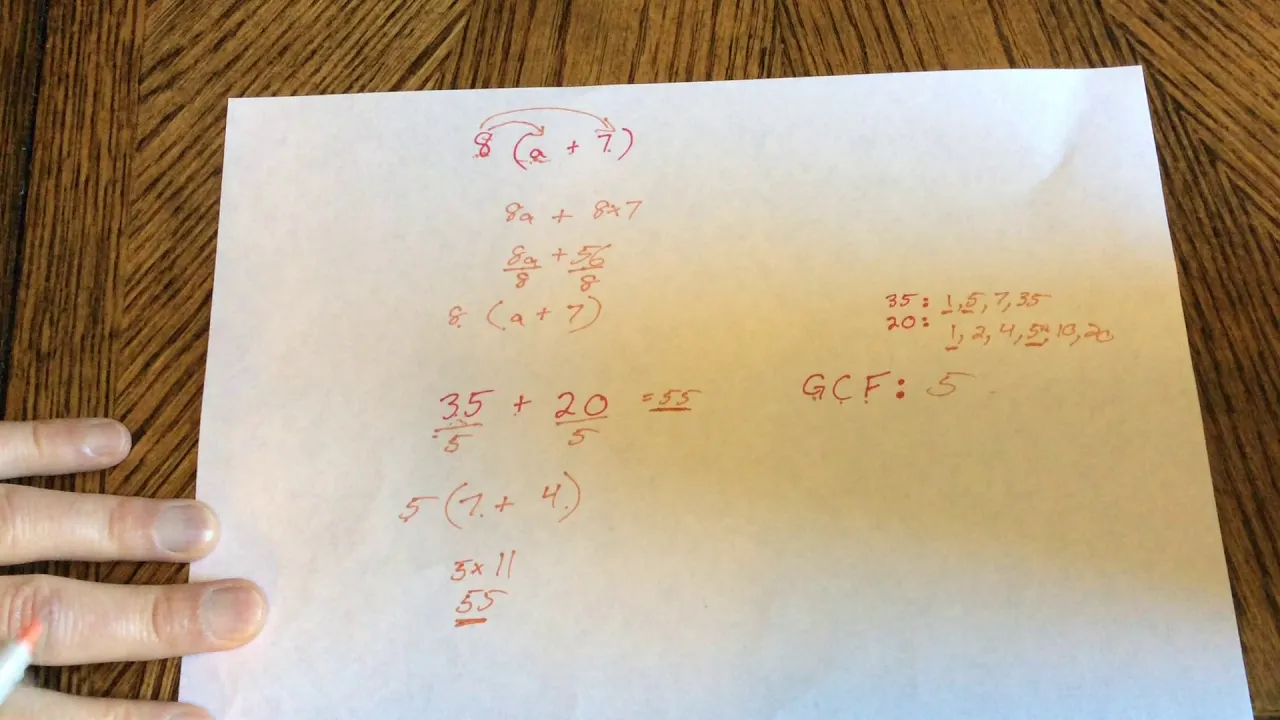 8 (a + 7)
8a + 8x7
8a + 56
8 8
8 (a + 7)
35: 1, 5, 7, 35
20: 1, 2, 4, 5, 10, 20
GCF: 5
35 + 20 = 55
5 5
5 (7 + 4)
5x11
55